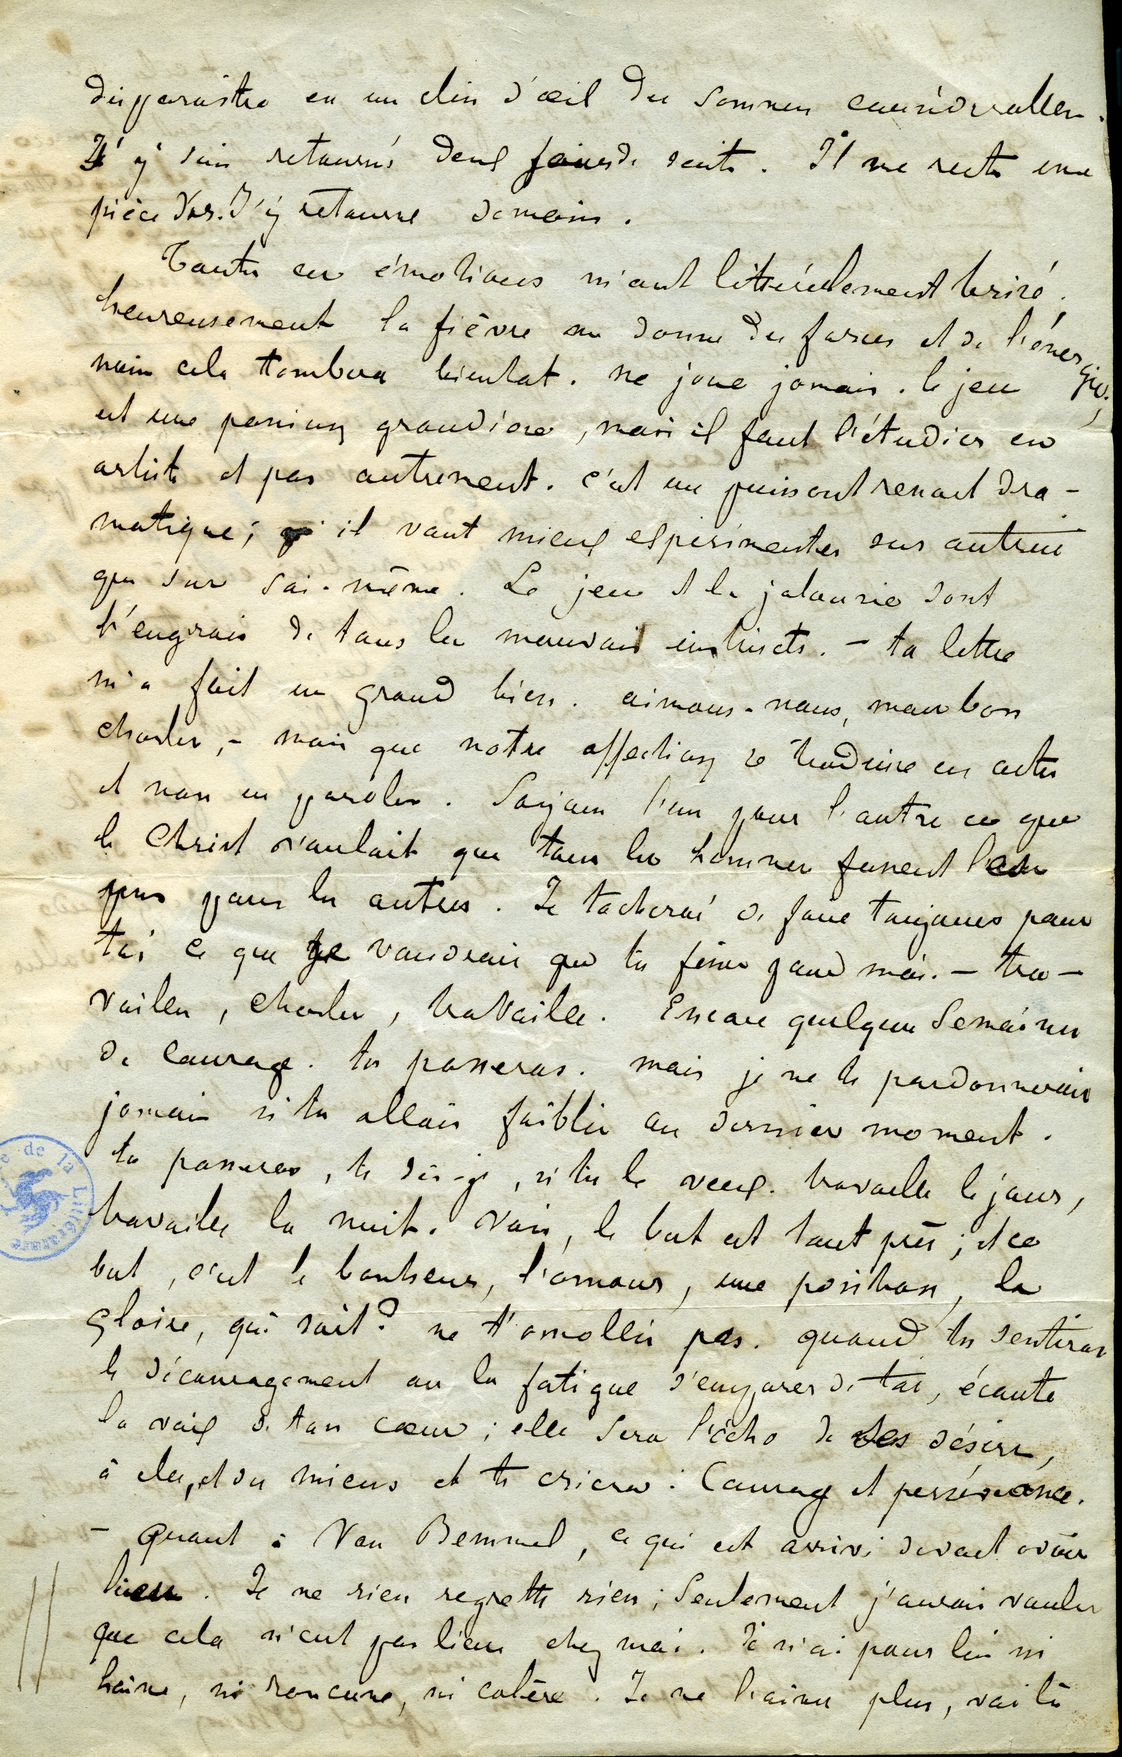 disparaitre en un clin d'œil des sommes considérables.
J'y suis retourné deux fois de suite. Il me reste une
pièce d'or. J'y retourne demain.
Toutes ces émotions m'ont littéralement brisé.
heureusement la fièvre me donne des forces et de l'énergie,
mais cela tombera bientot. ne joue jamais. le jeu
est une passion grandiose, mais il faut l'étudier en
artiste et pas autrement. c'est un puissant ressort dra-
matique; il vaut mieux expérimenter sur autrui
que sur soi-même. Le jeu et la jalousie sont
l'engrais de tous les mauvais instincts. - ta lettre
m'a fait un grand bien. aimons-nous, mon bon
charles, - mais que notre affection se traduise en actes
et non en paroles. Soyons l'un pour l'autre ce que
le Christ voulait que tous les hommes fussent les uns
pour les autres. Je tacherai de faire toujours pour
toi ce que je voudrais que tu fisses pour moi. - tra-
vailles, charles, travaille. Encore quelques semaines
de courage. tu passeras. mais je ne te pardonnerais
jamais si tu allais faiblir au dernier moment.
tu passeras, te dis-je, si tu le veux. travaille le jour,
travailles la nuit. vois, le but est tout près; et ce
but, c'est le bonheur, l'amour, une position, la
gloire, qui sait? ne t'amollis pas. quand tu sentiras
le découragement ou la fatigue s'emparer de toi, écoute
la voix de ton cœur; elle sera l'écho de ses désirs,
à elle, et des miens et te criera: Courage et persévérance.
- quant à Van Bemmel, ce qui est arrivé devait avoir
lieu. Je ne rien regrette rien; Seulement j'aurais voulu
que cela n'eut pas lieu chez moi. Je n'ai pour lui ni
haine, ni rancune, ni colère. Je ne l'aime plus, voilà
de la Littérature